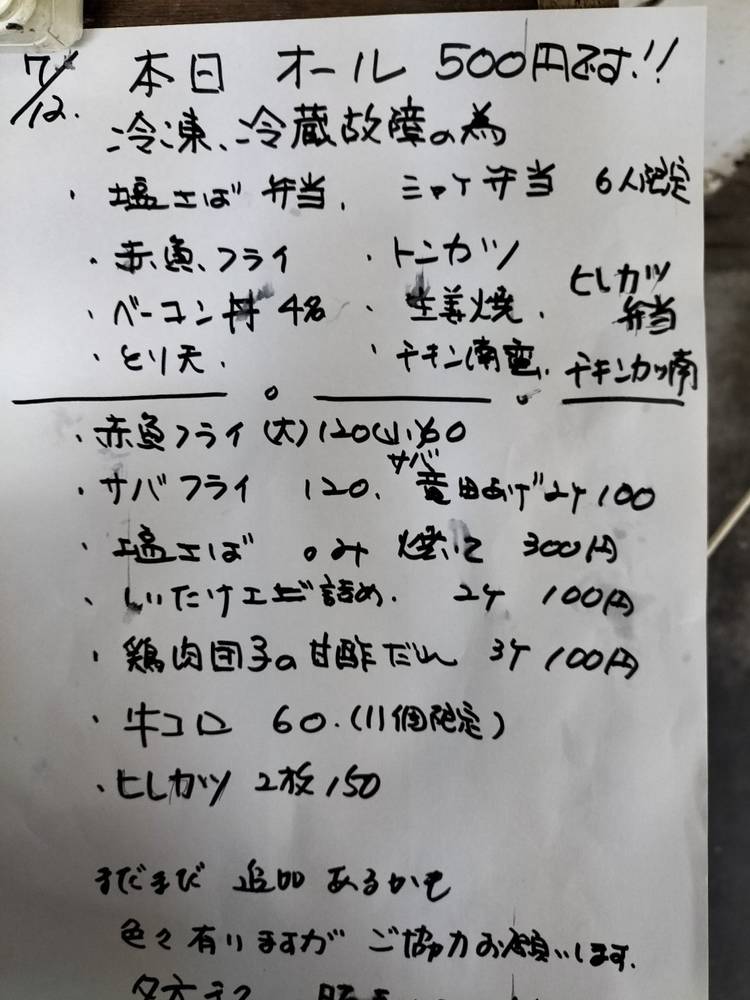 7/12. 本日 オール 500円です!!
冷凍、冷蔵故障の為
・塩さば 弁当. ミックイ弁当 6人限定
・赤魚フライ ・トンカツ
ヒレカツ
・ベーコン丼 4名 ・生姜焼. 弁当
・とり天. ・チキン南蛮. チキンカツ南
・赤魚フライ (大)120(小)60
サバ
・サバフライ 120. 竜田あげ2ケ100
・塩さば のみ 焼いて 300円
・しいたけエビ詰め. 2ケ 100円
・鶏肉団子の甘酢だれ 3ケ 100円
・牛コロ 60.(11個限定)
・ヒレカツ 2枚150
まだまだ 追加 あるかも
色々有りますが ご協力お願いします.
夕方